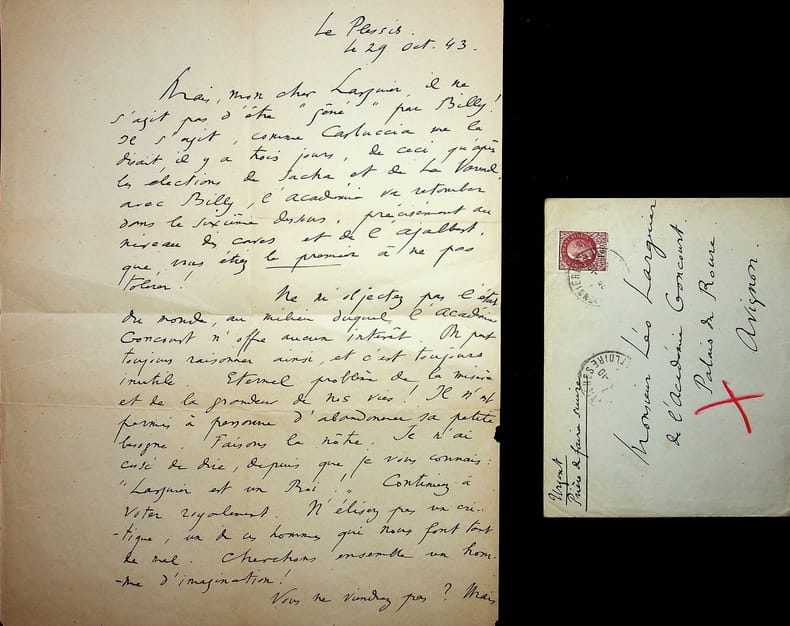 Le Plessis.
le 29 oct. 43.
Mais, mon cher Larguier, il ne
s'agit pas d'être "gêné" par Billy!
Il s'agit, comme Carbuccia me le
disait il y a trois jours, de ceci qu'après
les élections de Sacha et de La Varend
avec Billy, l'académie va retomber
dans le sixième dessous, précisément au
niveau des caves et de l'ajalbert,
que vous étiez le premier à ne pas
tolérer!
Ne m'objectez pas l'état
du monde, au milieu duquel l'Académie
Goncourt n'offre aucun intérêt. On peut
toujours raisonner ainsi, et c'est toujours
inutile. Eternel problème de la misère
et de la grandeur de nos vies! Il n'est
permis à personne d'abandonner sa petite
besogne. Faisons la nôtre. Je n'ai
cessé de dire, depuis que je vous connais:
"Larguier est un Roi!" Continuez à
voter royalement. N'élisez pas un cri-
-tique, un de ces hommes qui nous font tant
de mal. Cherchons ensemble un hom-
-me d'imagination!
Vous ne viendrez pas? Mais
Monsieur Léo Larguier
de l'Académie Goncourt
Palais du Roure
Avignon.
Urgent
Prière de faire suivre